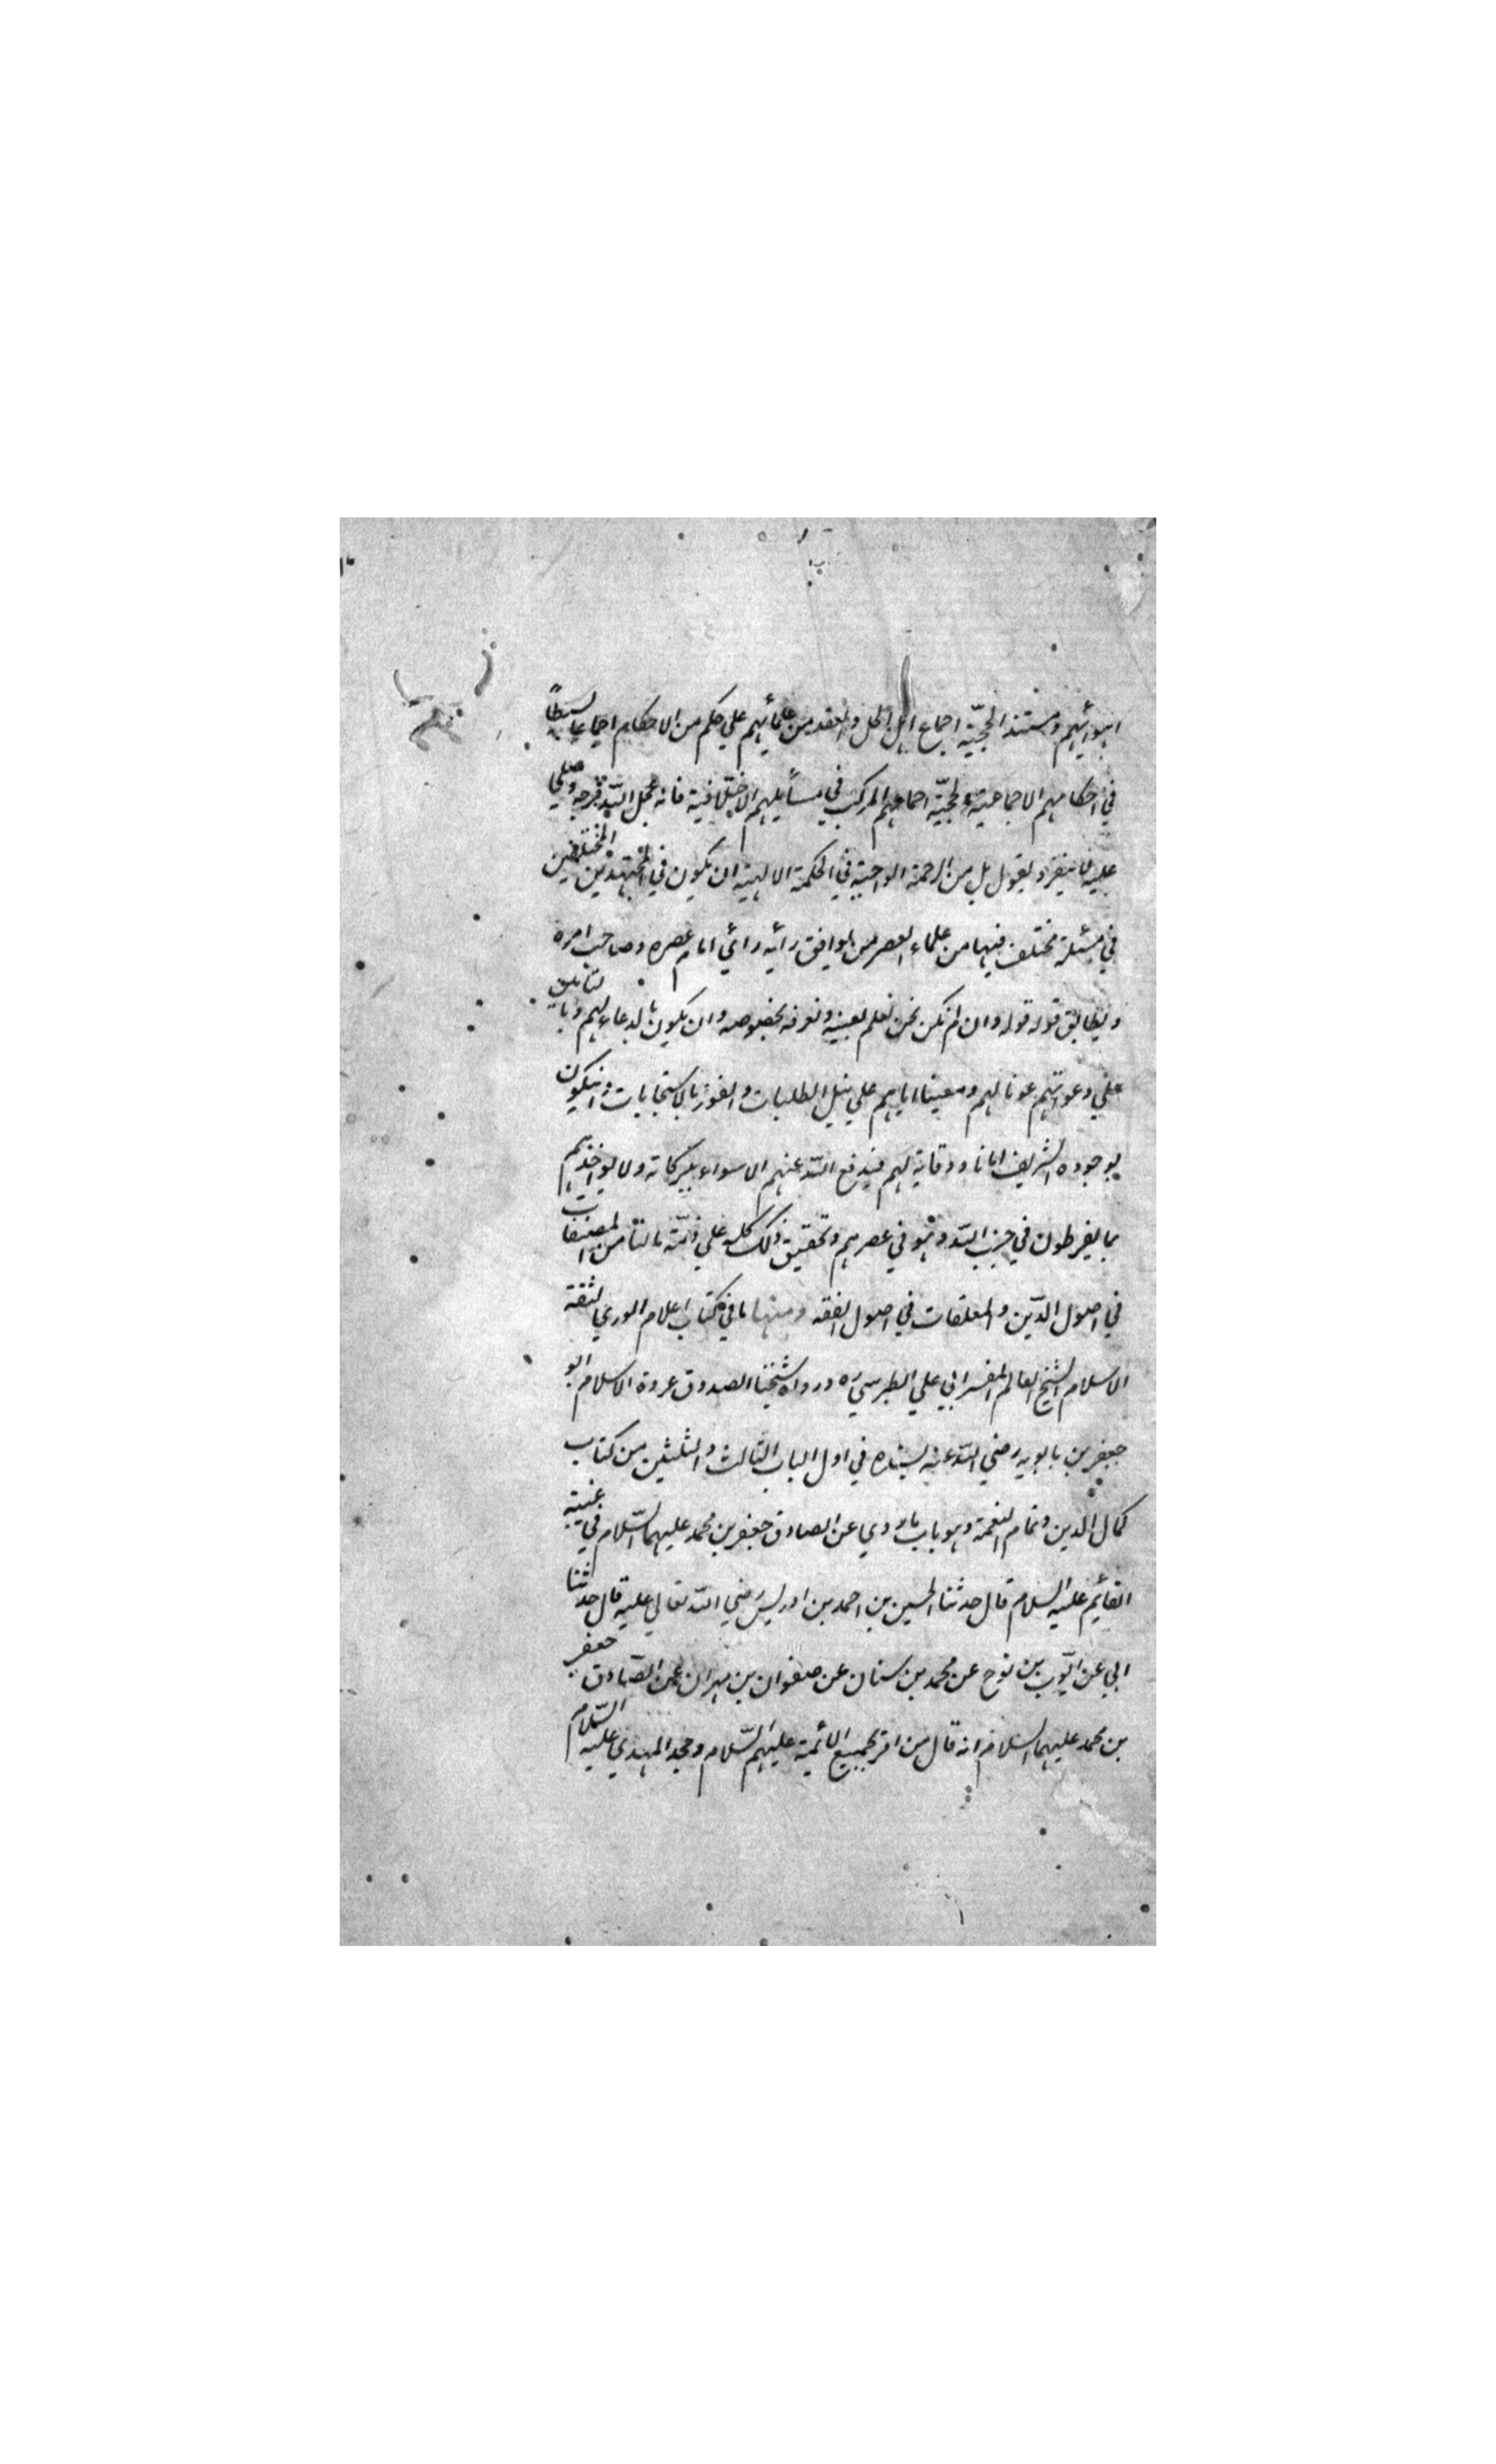 اهوائهم ومستند الحجيّة اجماع اهل الحل والعقد من علمائهم علي حكم من الاحكام اجماعا بسيطاً
في احكامهم الاجماعية ولحجيّة اجماعهم المركب في مسايلهم الاختلافية فانه عجل اللّه فرجه وصلي
عليه لا ينفرد بقول بل من الرحمة الواجبة في الحكمة الالهية ان يكون في المجتهدين المختلفين
في مسئلة مختلف فيها من علماء العصر من يوافق رأيه رأي امام عصره وصاحب امره
ويطابق قوله قوله وان لم نكن نحن نعلم بعينه ونعرفه بخصوصه وان يكون بالدعاء لهم وبا لتامين
علي دعواتهم عونا لهم ومعينا اياهم علي نيل الطلبات والفوز بالاستجابات وان يكون
بوجوده الشريف امانا ووقاية لهم فيدفع اللّه عنهم الاسواء ببركاته ولا يؤاخذهم
بما يفرطون في جنب اللّه وهو في عصرهم وتحقيق ذلك كله علي ذمّة ما لنا من المصنفات
في اصول الدّين والمعلقات في اصول الفقه ومنها ما في كتاب اعلام الوري لثقة
الاسلام الشيخ العالم المفسر ابي علي الطبرسي ره ورواه شيخنا الصدوق عروة الاسلام ابو
جعفر بن بابويه رضي اللّه عنه بسنده في اول الباب الثالث والثلثين من كتاب
كمال الدين وتمام النعمة وهو باب ما روي عن الصادق جعفر بن محمد عليهما السّلام في غيبة
القايم عليه السلام قال حدثنا الحسين بن احمد بن ادريس رضي اللّه تعالي عليه قال حدثنا
ابي عن ايّوب بن نوح عن محمد بن سنان عن صفوان بن مهران عن الصّادق جعفر
بن محمد عليهما السلام انه قال من اقر بجميع الائمة عليهم السّلام وجحد المهدي عليه السّلام